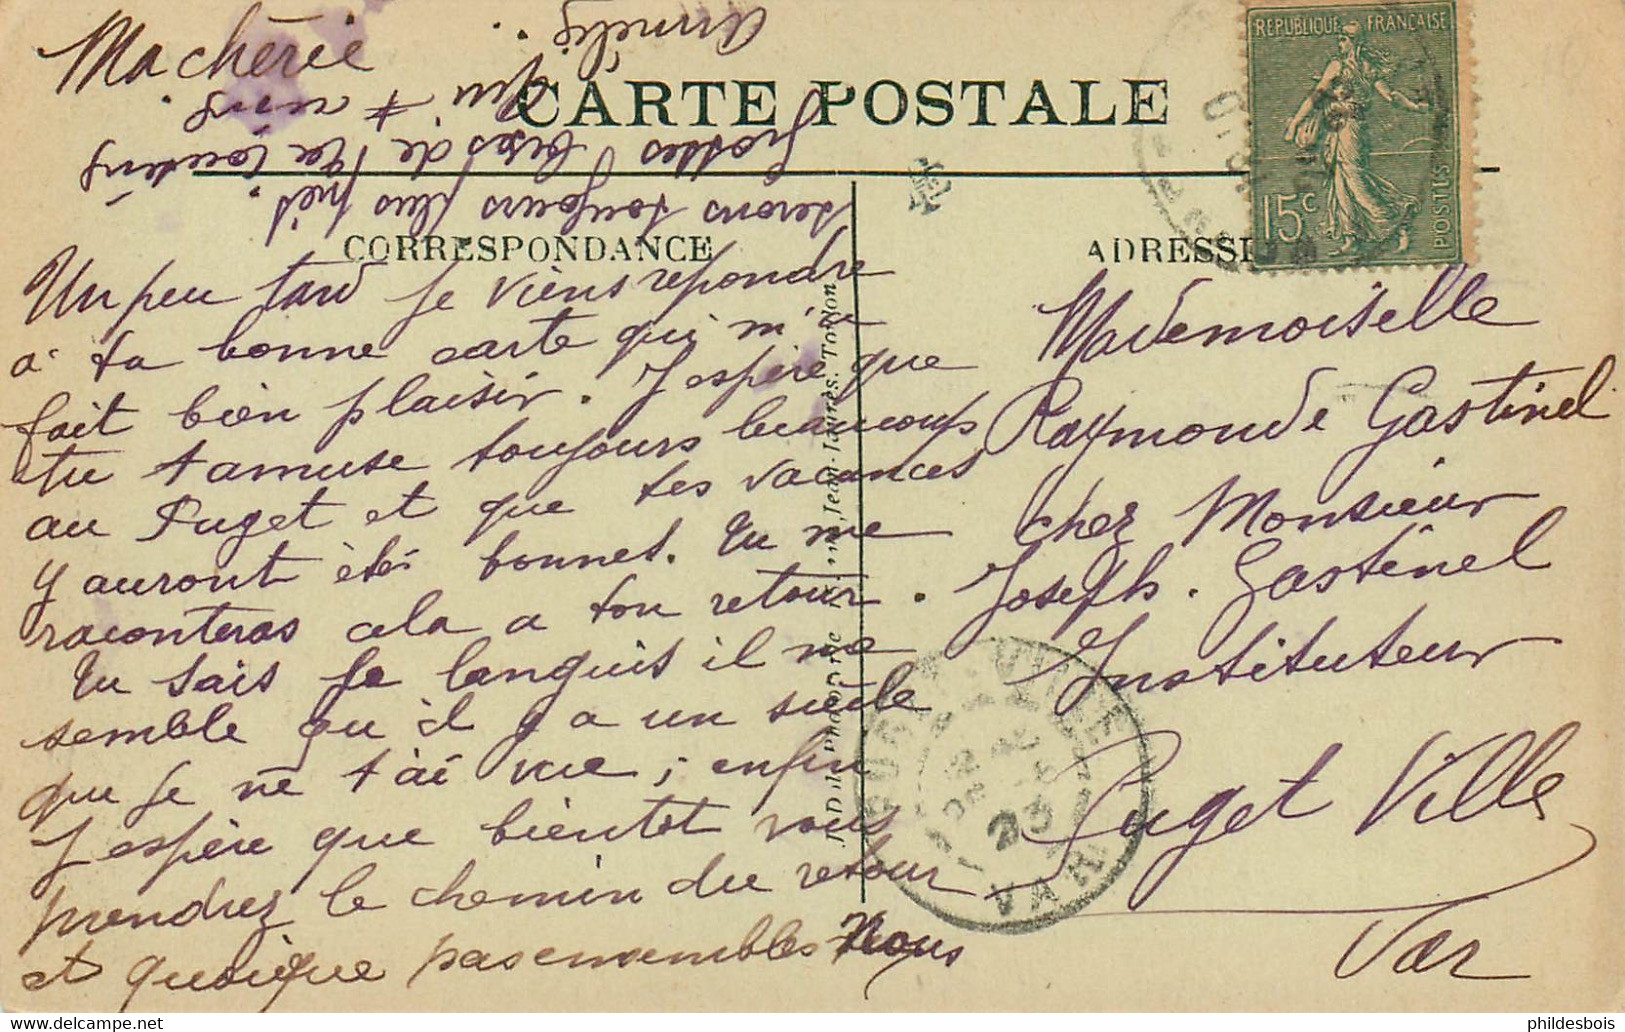 Ma chérie
CARTE POSTALE
REPUBLIQUE FRANÇAISE
15c
POSTES
CORRESPONDANCE
ADRESSE
Un peu tard je viens repondre
à ta bonne carte qui m'a
fait bien plaisir. J'espère que
tu t'amuse toujours beaucoup
au Puget et que tes vacances
y auront été bonnes. Tu me
raconteras cela a ton retour.
Tu sais je languis il me
semble qu'il y a un siècle
que je ne t'ai vue, enfin
J'espère que bientot vous
prendrez le chemin du retour
et quoique pas ensembles Nous
serons toujours plus près.
Grosses bises de ta cousine
qui t'aime
Amélie.
Mademoiselle
Raymonde Gastinel
chez Monsieur
Joseph. Gastinel
Instituteur
Puget Ville
Var
Jean-Jaurès. Toulon
VILLE
23
VAR
www.delcampe.net
phildesbois